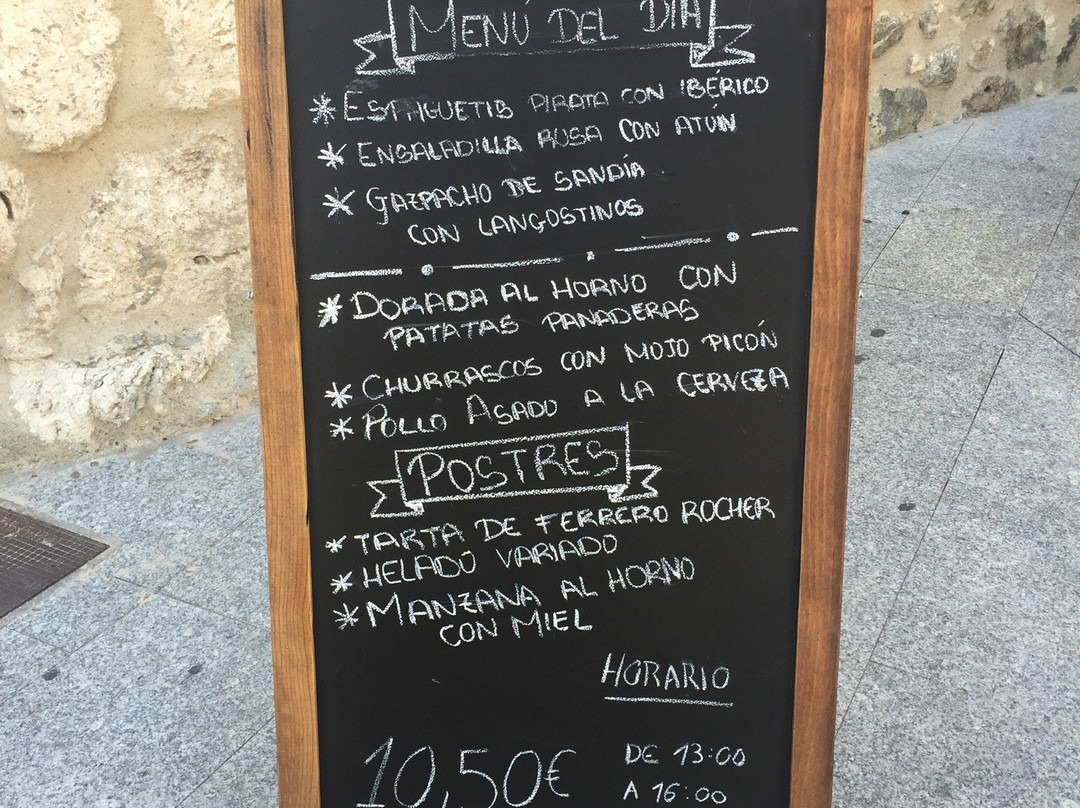 MENÚ DEL DÍA
* ESPAGUETIS PIRATA CON IBÉRICO
* ENSALADILLA RUSA CON ATÚN
* GAZPACHO DE SANDÍA
CON LANGOSTINOS
* DORADA AL HORNO CON
PATATAS PANADERAS
* CHURRASCOS CON MOJO PICÓN
* POLLO ASADO A LA CERVEZA
POSTRES
* TARTA DE FERRERO ROCHER
* HELADO VARIADO
* MANZANA AL HORNO
CON MIEL
HORARIO
10,50€
DE 13:00
A 16:00